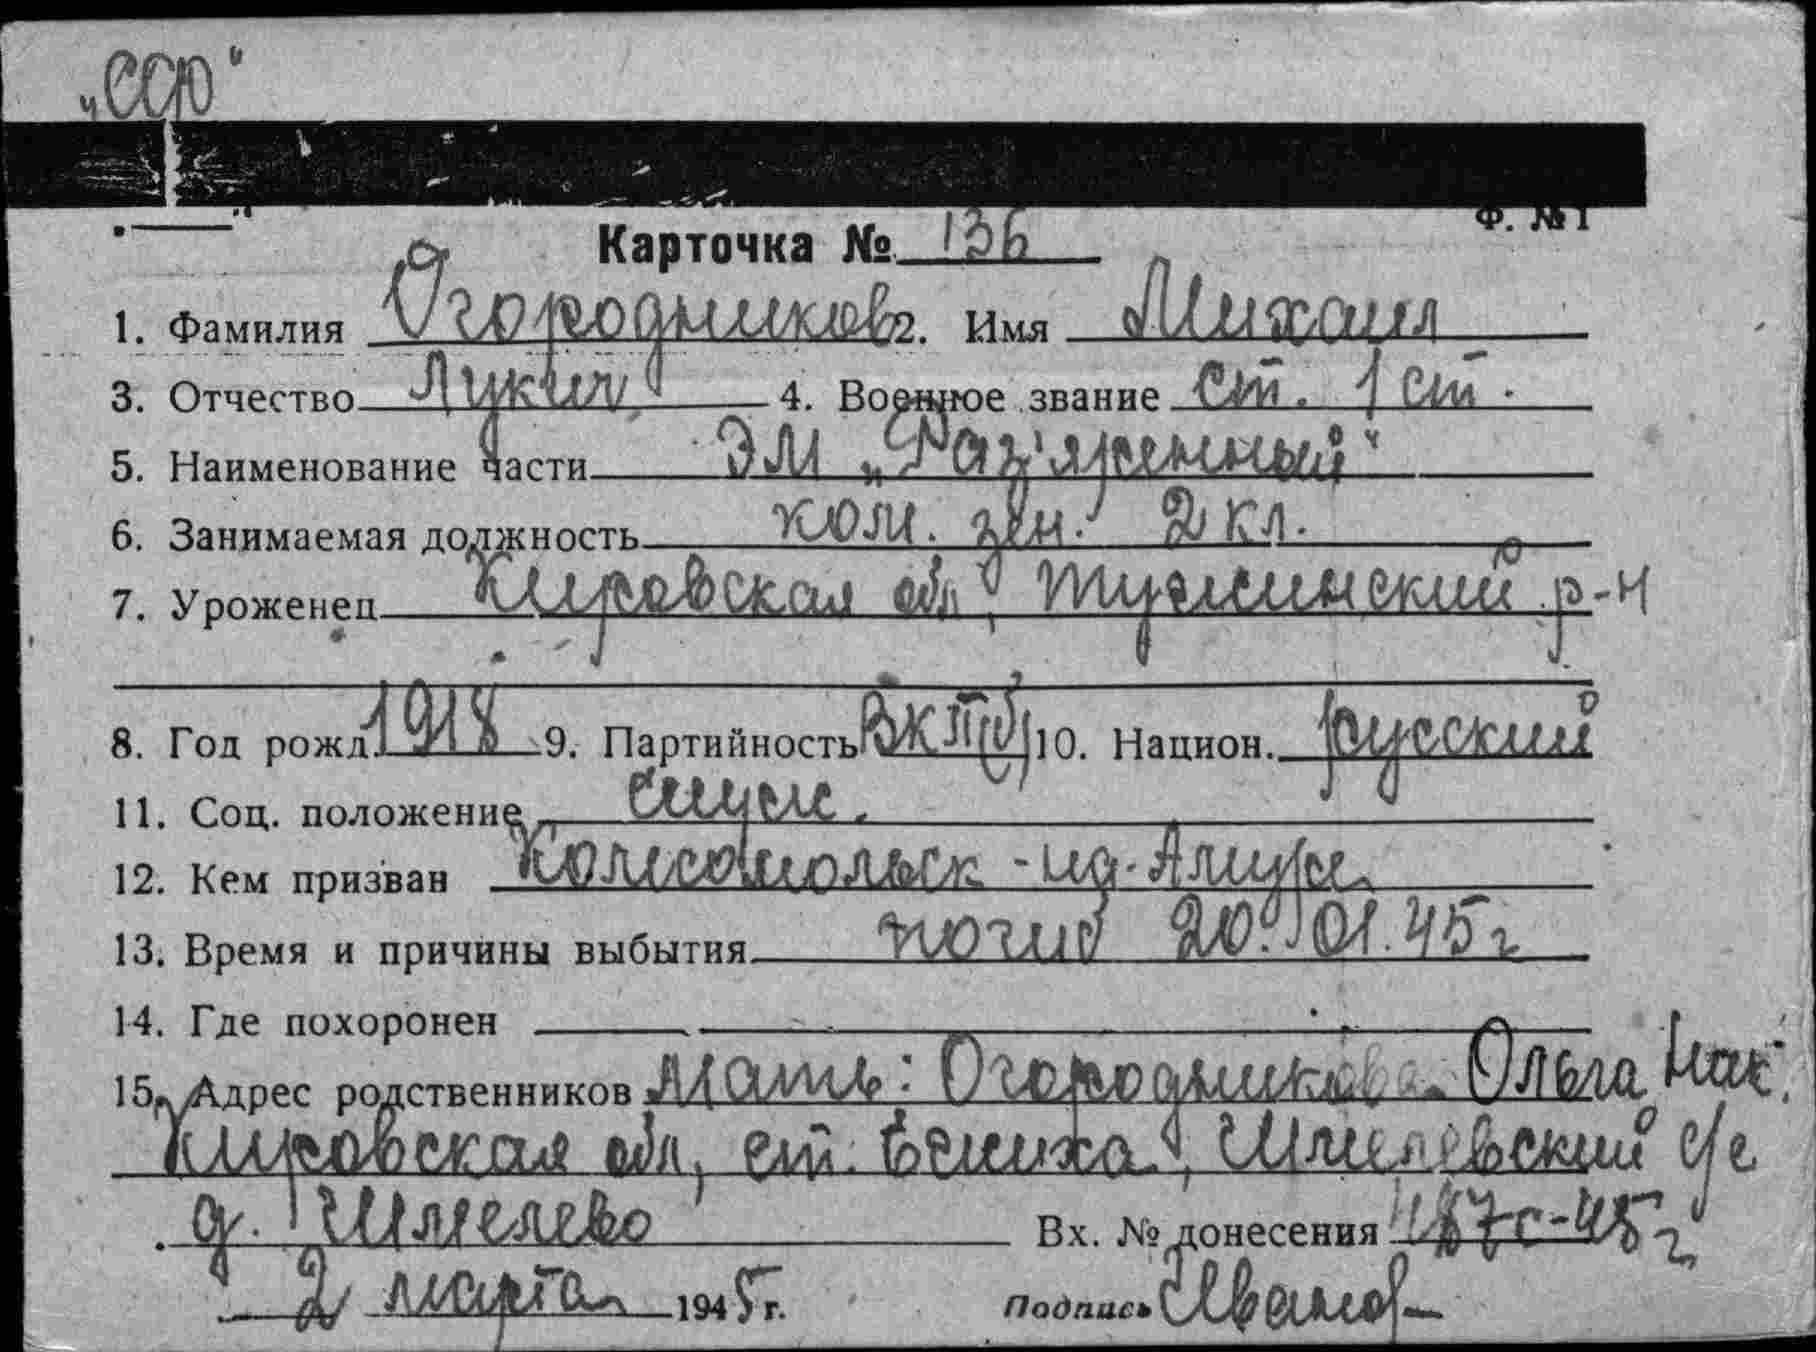 „ССЮ"
Ф. № 1
Карточка № 136
1. Фамилия Огородников 2. Имя Михаил
3. Отчество Лукич 4. Военное звание ст. 1 ст.
5. Наименование части ЭМ „Раз'яренный"
6. Занимаемая должность ком. зен. 2 кл.
7. Уроженец Кировская обл, Тужинский р-н
8. Год рожд. 1918 9. Партийность ВКП(б) 10. Национ. русский
11. Соц. положение служ.
12. Кем призван Комсомольск-на-Амуре
13. Время и причины выбытия погиб 20.01.45г
14. Где похоронен
15. Адрес родственников Мать: Огородникова Ольга Мак.
Кировская обл, ст. Ежиха, Шмелевский с/с
д. Шмелево Вх. № донесения 487с-45г
2 марта 1945 г. Подпись Иванов